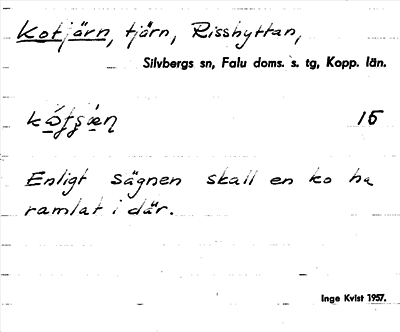 Kotjärn, tjärn, Risshyttan,
Silvbergs sn, Falu doms. s. tg, Kopp. län.
15
Enligt sägnen skall en ko ha
ramlat i där.
Inge Kvist 1957.